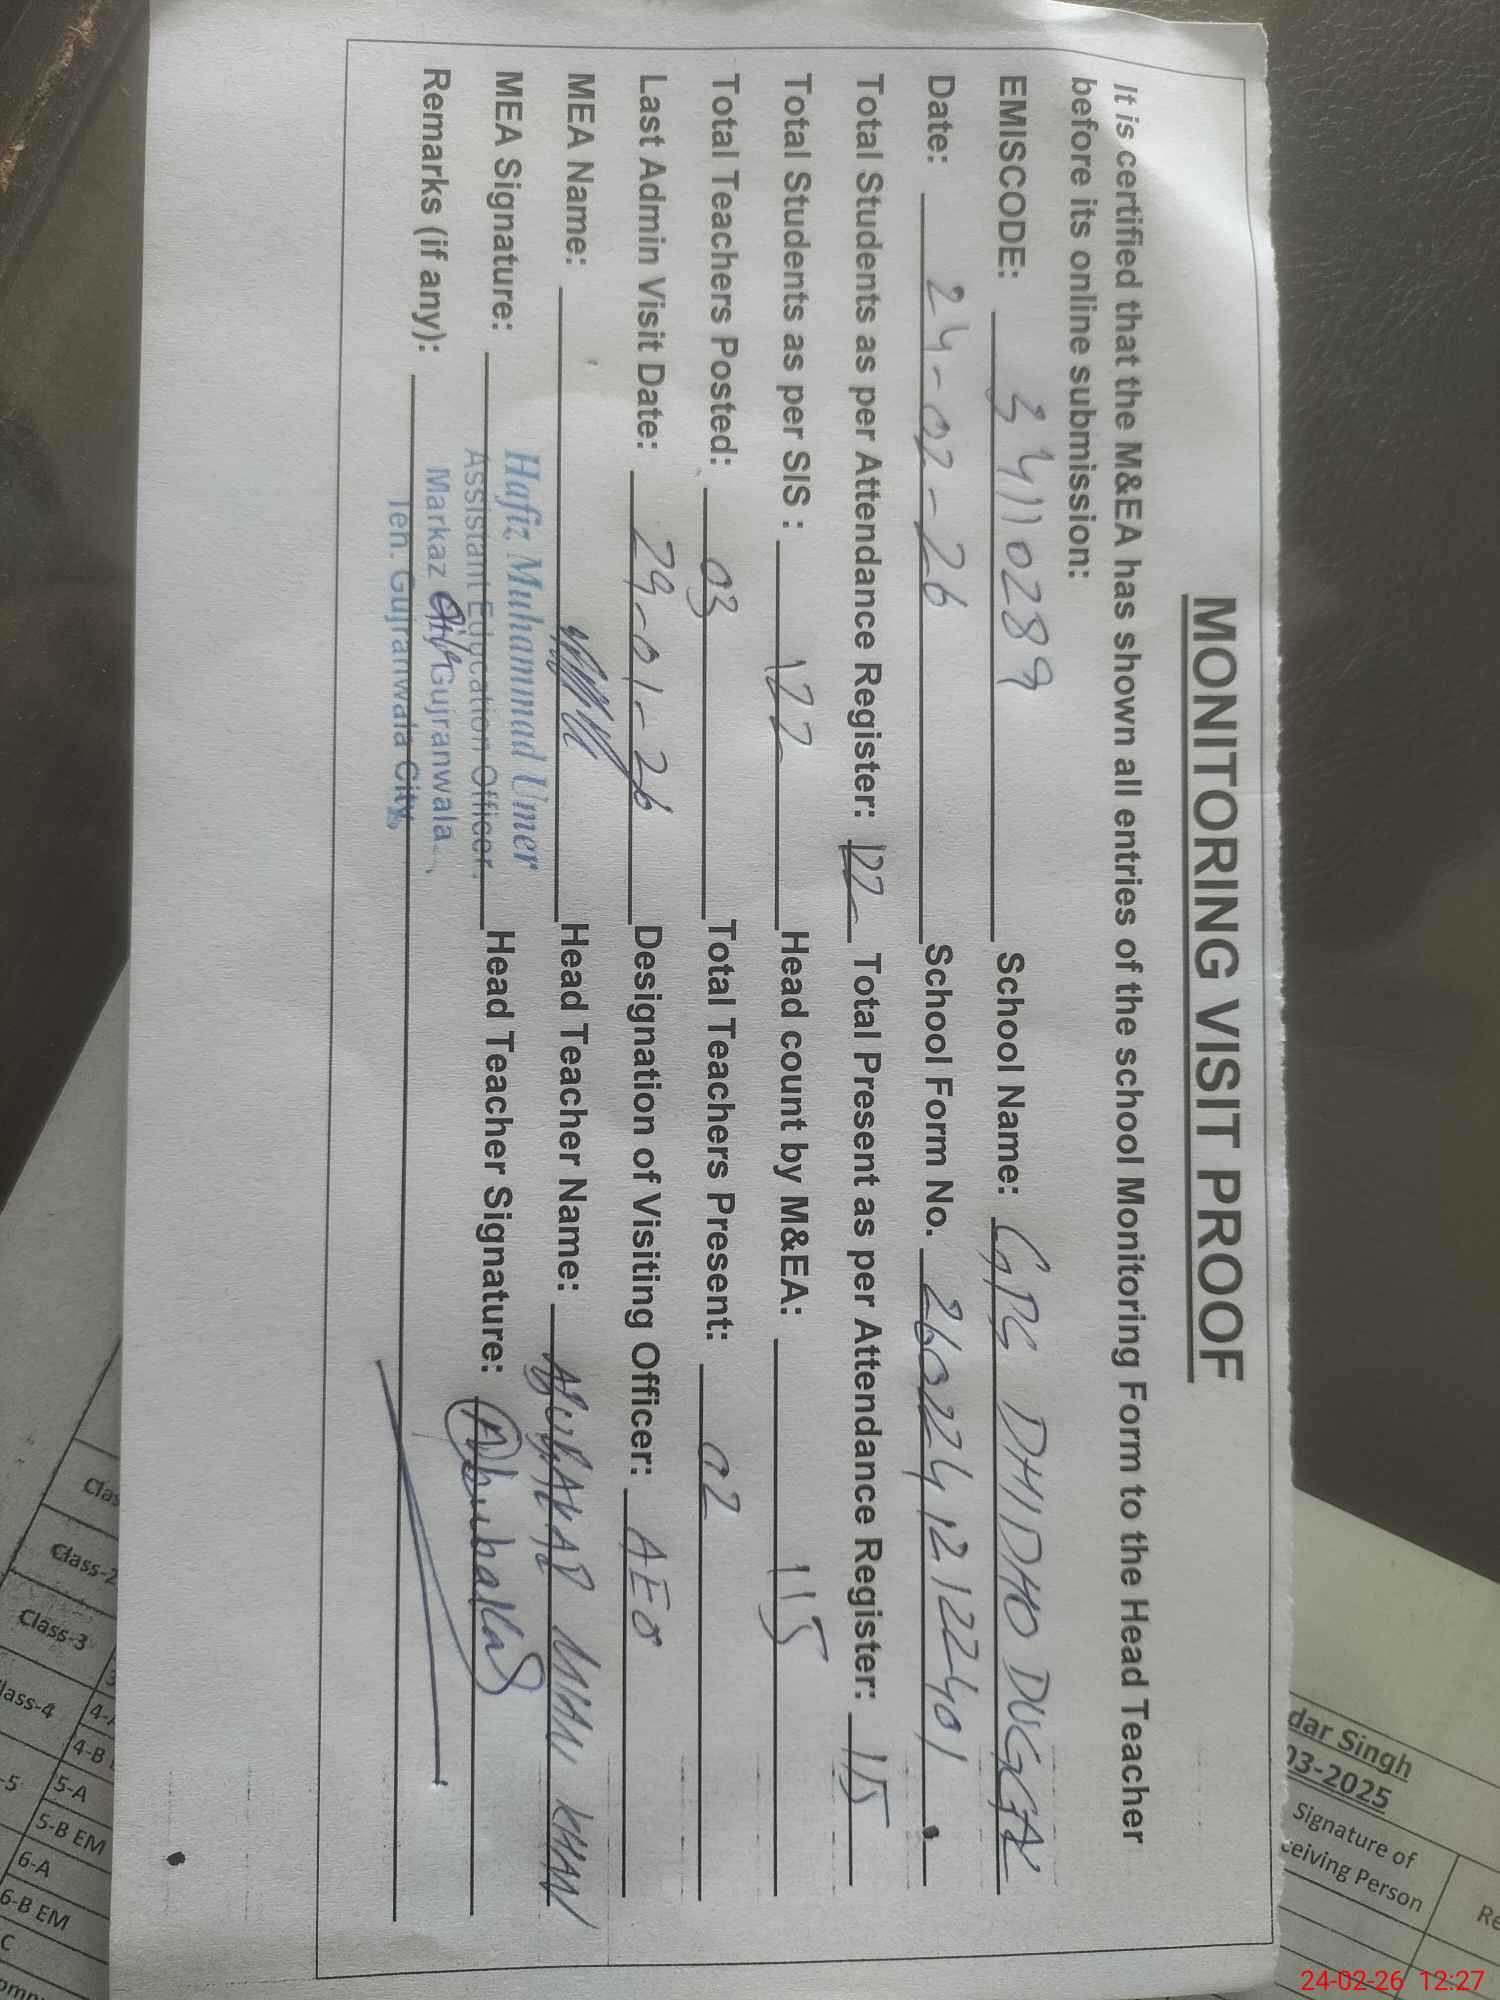 MONITORING VISIT PROOF
It is certified that the M&EA has shown all entries of the school Monitoring Form to the Head Teacher
before its online submission:
EMISCODE: 34110289 School Name: GPS DHIDHO DUGGAL
Date: 24-02-26 School Form No. 26022412122401
Total Students as per Attendance Register: 122 Total Present as per Attendance Register: 115
Total Students as per SIS : 122 Head count by M&EA: 115
Total Teachers Posted: 03 Total Teachers Present: 02
Last Admin Visit Date: 29-01-26 Designation of Visiting Officer: AEO
MEA Name: Head Teacher Name: KHAN
MEA Signature: Head Teacher Signature: Abubakar
Remarks (if any):
Hafiz Muhammad Umer
Assistant Education Officer
Markaz Gujranwala
Teh. Gujranwala City,
dar Singh
03-2025
Signature of
ceiving Person
Re
Clas
Class-2
Class-3
lass-4
-5
4-A
4-B
5-A
5-B EM
6-A
6-B EM
C
omp
24-02-26 12:27